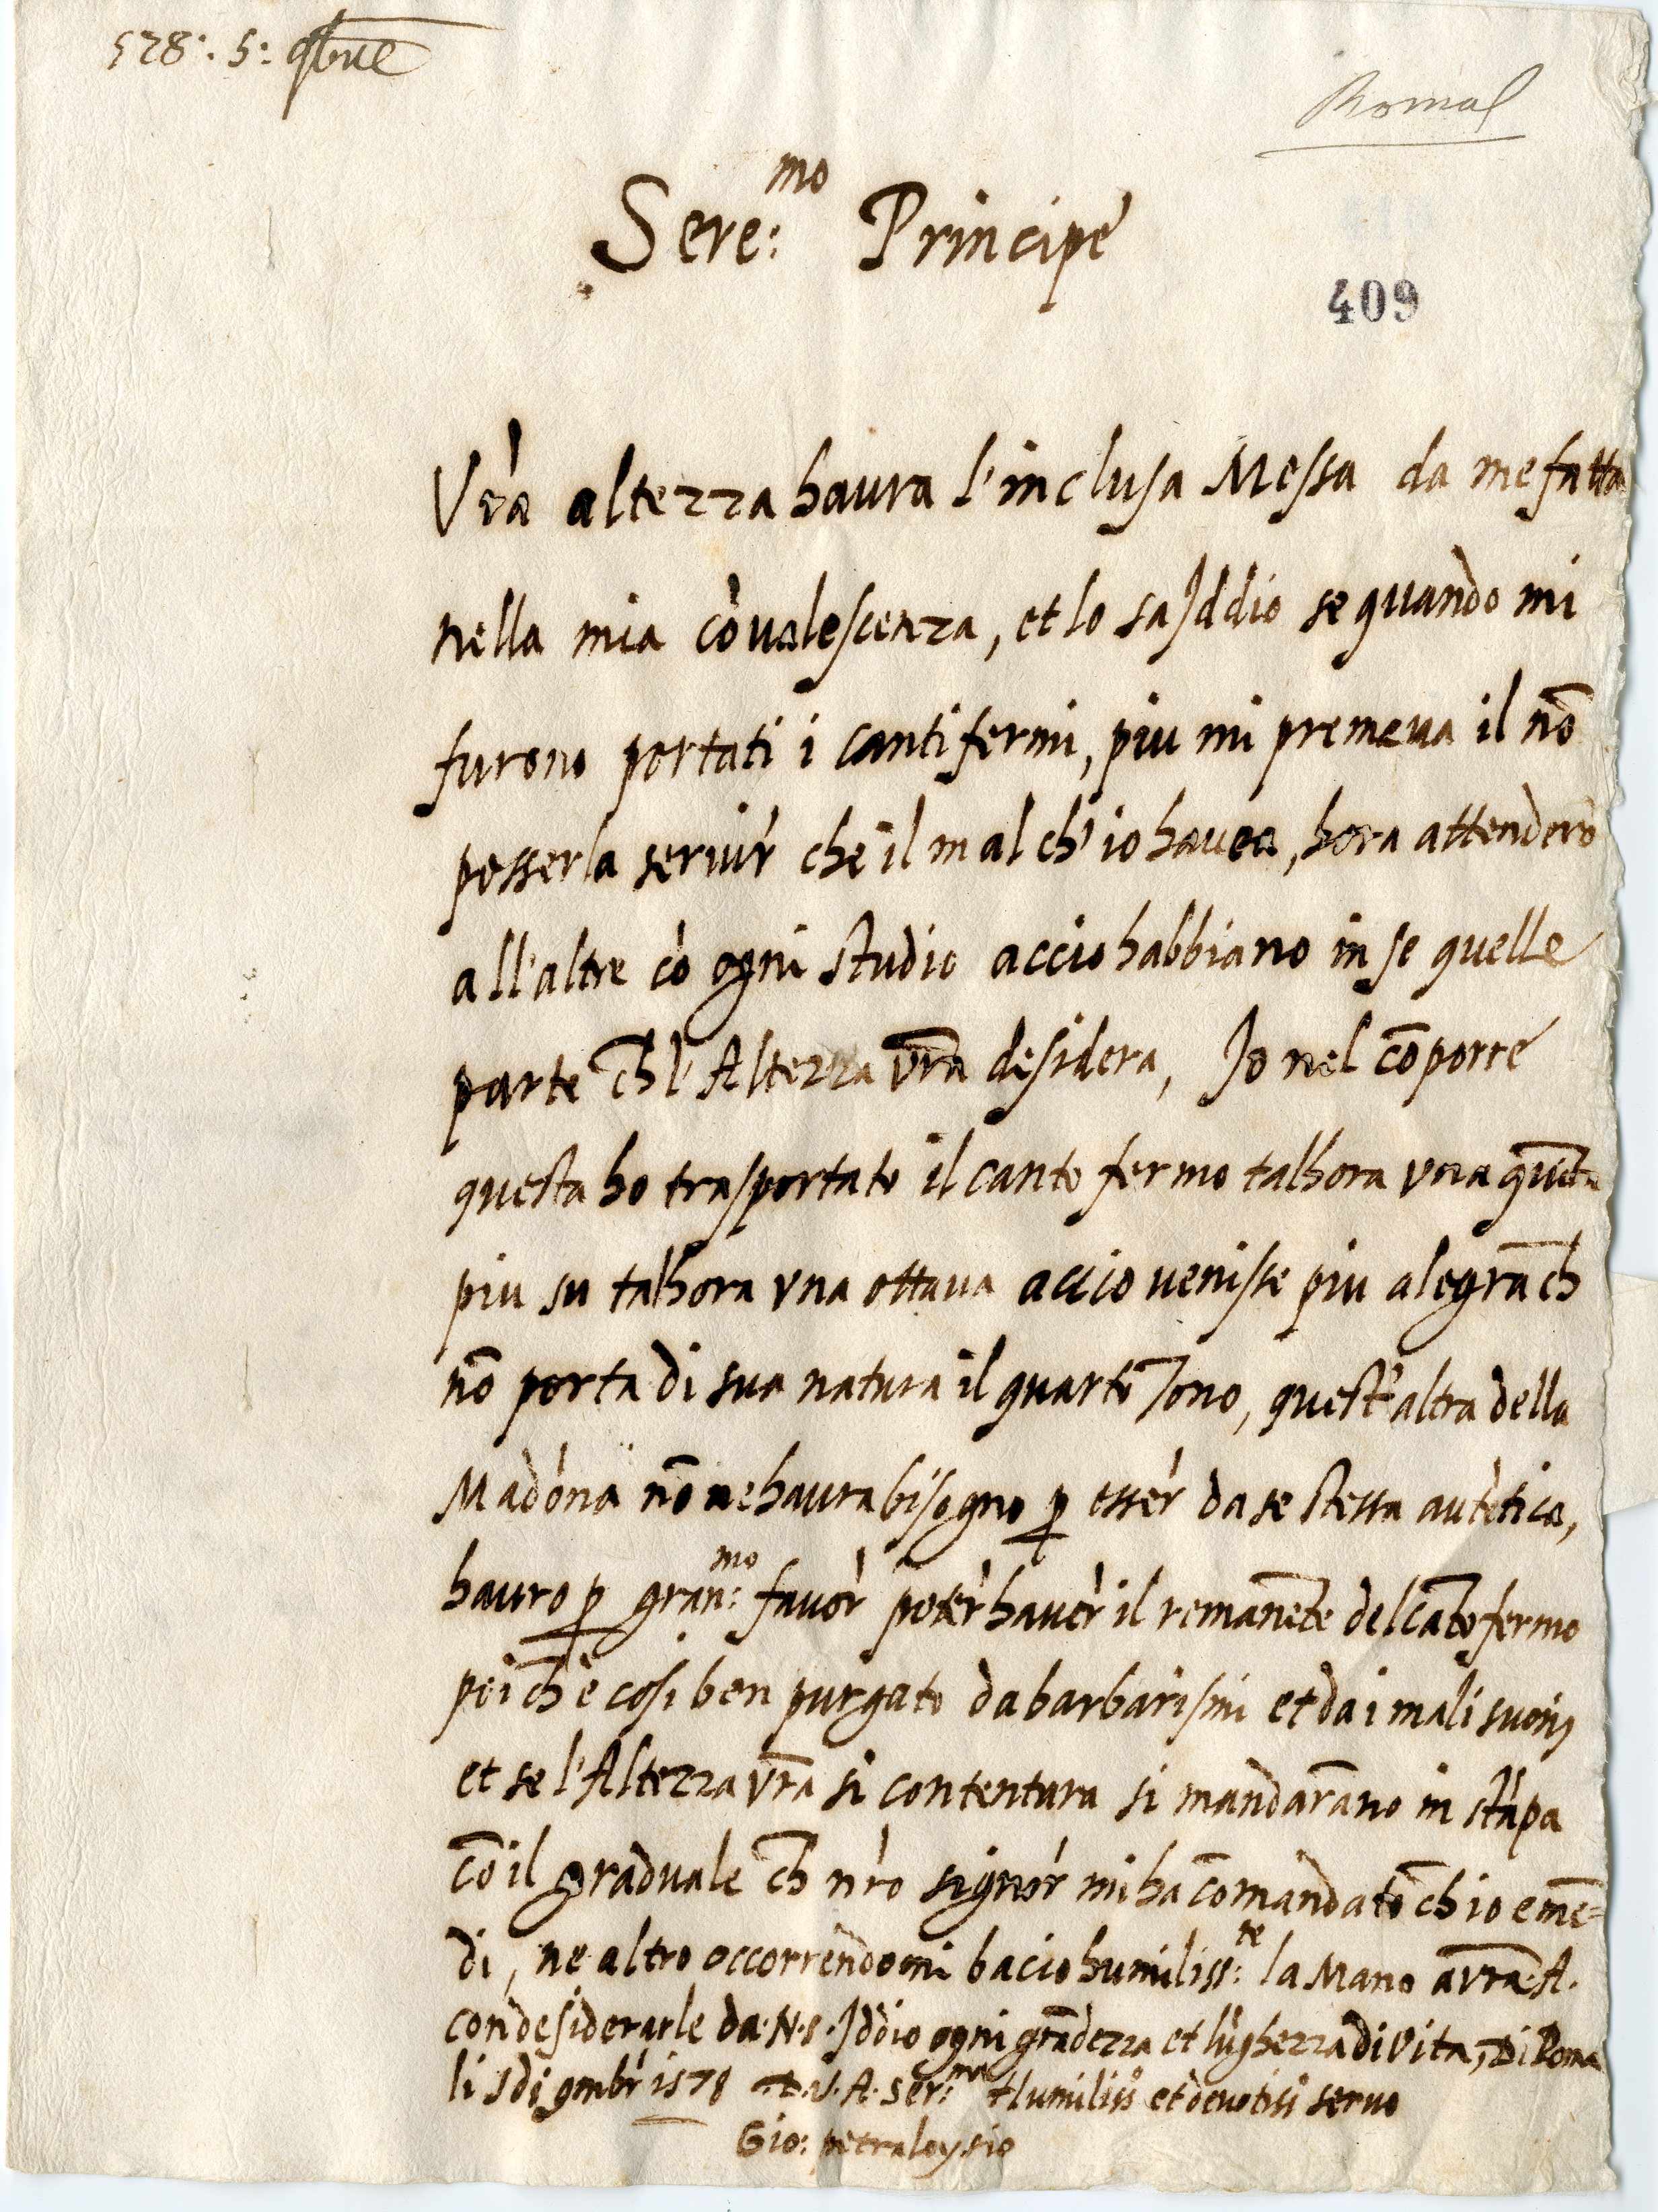 578: 5: 9bre
Roma
Sere:mo Principe
409
Vrà altezza haura l'inclusa Messa da me fatta
nella mia còvalescenza, et lo sa Jddio se quando mi
furono portati i canti fermi, piu mi premeua il nō
posserla seruir che il mal ch'io hauea, hora attendero
all'altre cò ogni studio accio habbiano in se quelle
parte ch̄ l'Altezza vr̄a desidera, Jo nel cōporre
questa ho trasportato il canto fermo talhora vna quīta
piu su talhora vna ottaua accio venisse piu alegra ch̄
nō porta di sua natura il quarto Tono, quest'altra della
Madòna nō ne haura bisogno p̱ esser da se stessa autètica,
hauro p̱ gran:mo fauòr potèr hauèr il remanēte del cāto fermo
poi ch̄ è cosi ben purgato da barbarismi et da i mali suoni
et se l'Altezza vr̄a si contentara si mandarāno in stāpa
cō il graduale ch̄ nr̀o signòr mi ha cōmandato ch̄ io emē=
di, ne altro occorrendomi bacio humiliss:te la Mano a vr̄a A.
con desiderarle da N.S. Jddio ogni grādezza et lūghezza di vita, Di Roma
li 5 di 9mbr 1578 D.V.A. Ser:ma Humiliss et deuotiss seruo
Gio: petraloysio